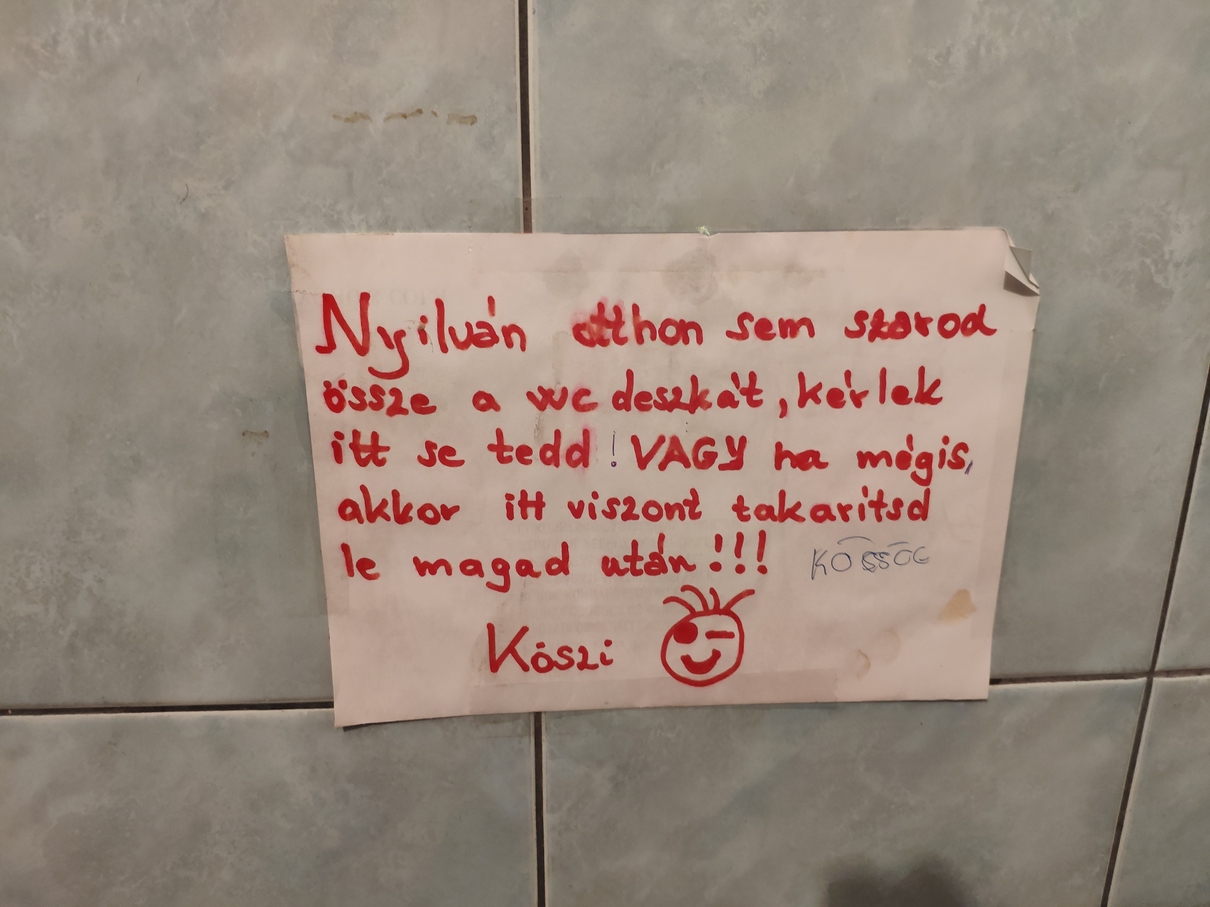 Nyilván otthon sem szarod
össze a wc deszkát, kérlek
itt se tedd! VAGY ha mégis,
akkor itt viszont takarítsd
le magad után!!!
Köszi